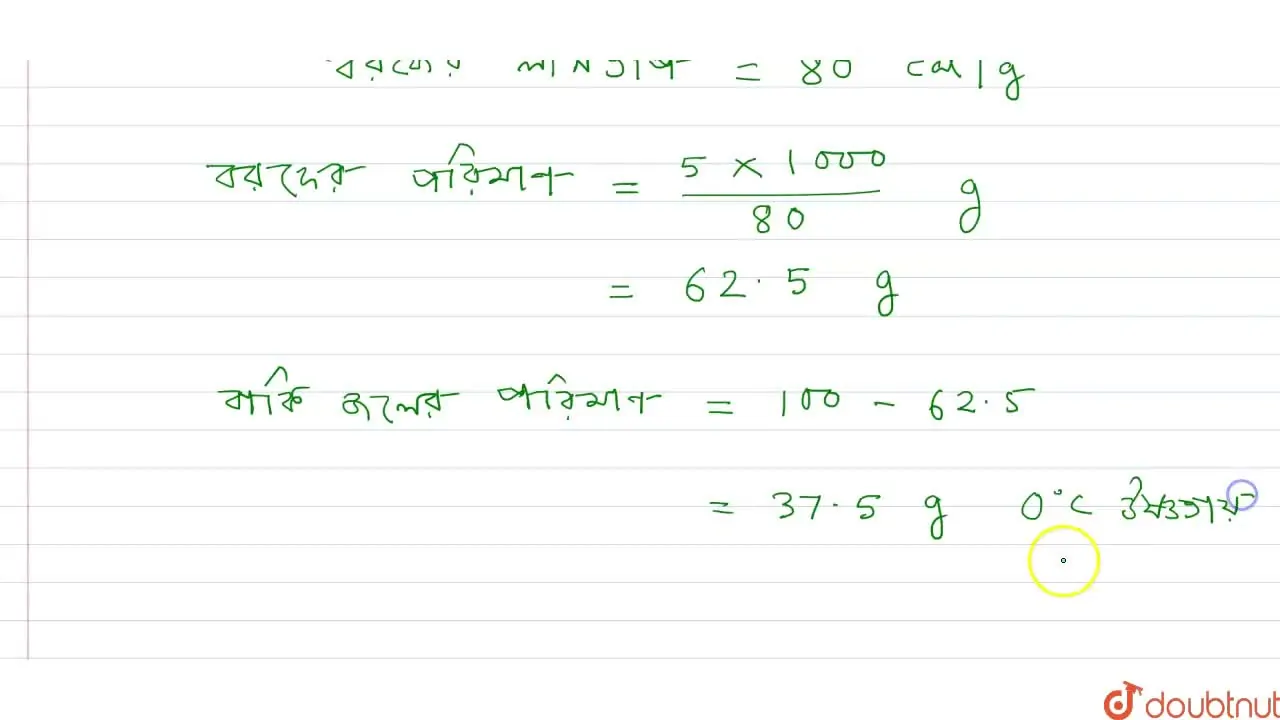 বরফের লীনতাপ = 80 cal/g
বরফের পরিমাণ = 5 × 1000 / 80 g
= 62.5 g
বাকি জলের পরিমাণ = 100 - 62.5
= 37.5 g 0°C উষ্ণতায়
doubtnut